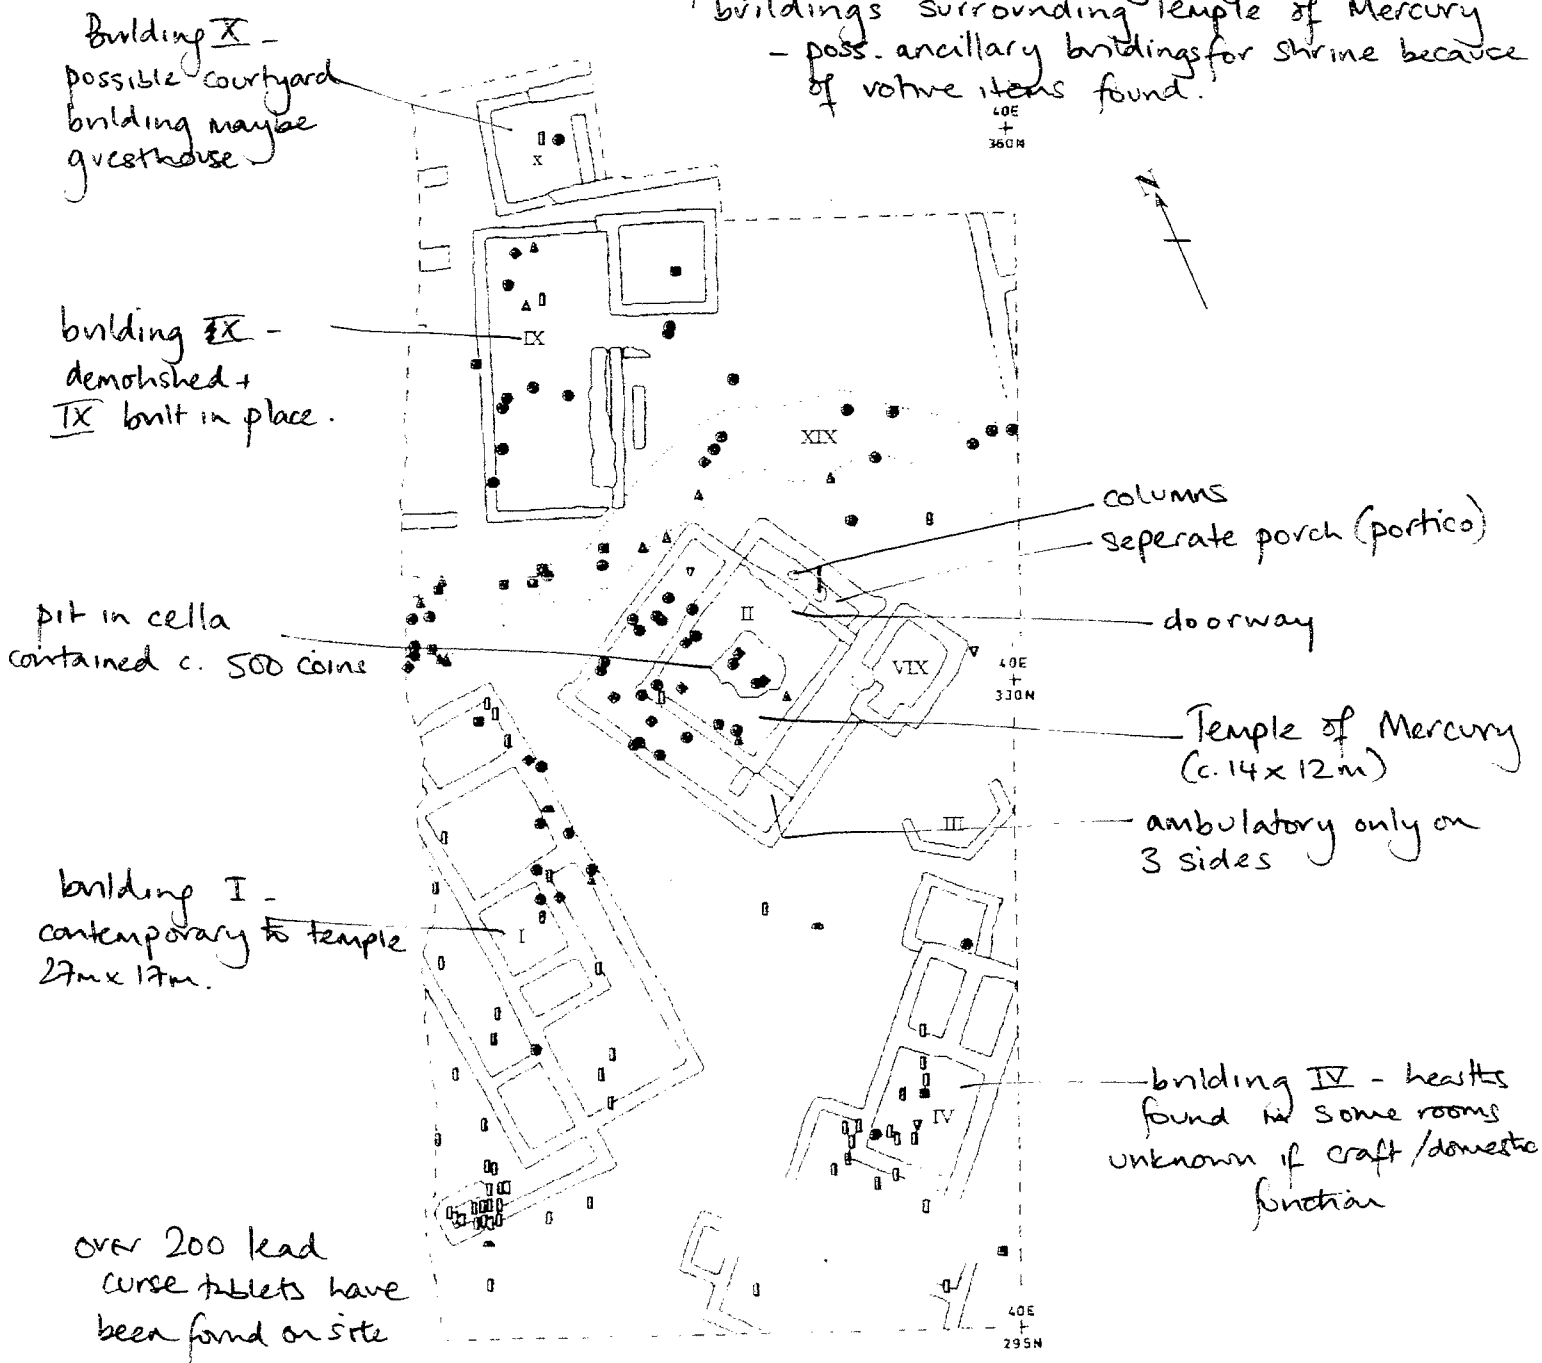 buildings surrounding Temple of Mercury
- poss. ancillary buildings for shrine because
of votive items found.
Building X -
possible courtyard
building maybe
guesthouse
40E
360N
N
X
building IX -
demolished +
IX built in place.
IX
XIX
columns
seperate porch (portico)
doorway
pit in cella
contained c. 500 coins
II
VIX
40E
330N
Temple of Mercury
(c. 14 x 12m)
III
ambulatory only on
3 sides
building I -
contemporary to temple
27m x 17m.
I
building IV - hearths
found in some rooms
unknown if craft/domestic
function
IV
over 200 lead
curse tablets have
been found on site
40E
295N